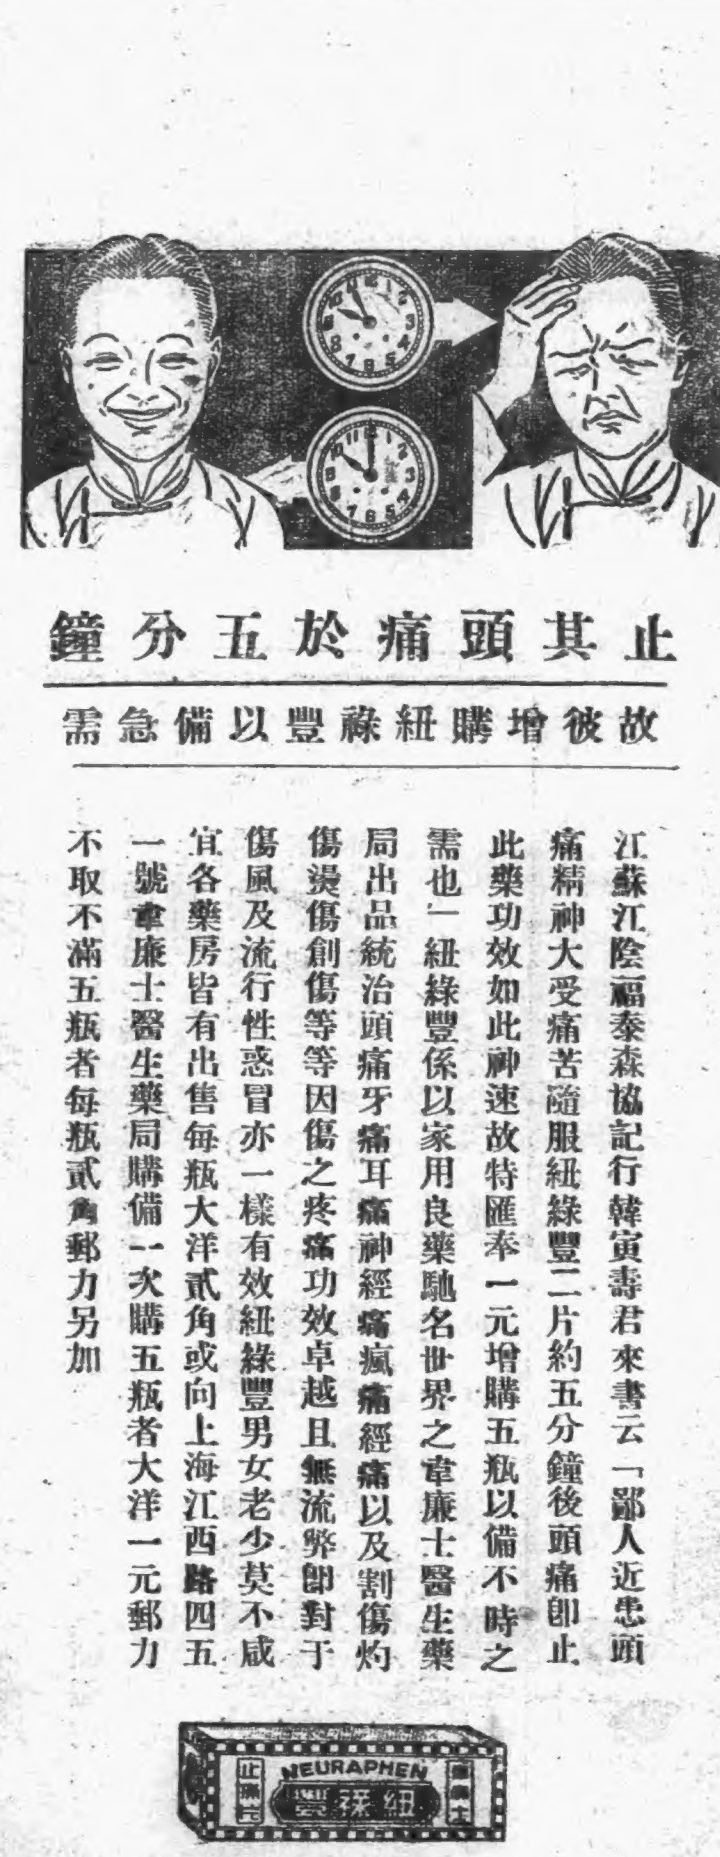 止其頭痛於五分鐘
故彼增購紐祿豐以備急需
江蘇江陰福泰森協記行韓寅壽君來書云「鄙人近患頭
痛精神大受痛苦隨服紐綠豐二片約五分鐘後頭痛卽止
此藥功效如此神速故特匯奉一元增購五瓶以備不時之
需也」紐綠豐係以家用良藥馳名世界之韋廉士醫生藥
局出品統治頭痛牙痛耳痛神經痛瘋痛經痛以及割傷灼
傷燙傷創傷等等因傷之疼痛功效卓越且無流弊卽對于
傷風及流行性惑冒亦一樣有效紐綠豐男女老少莫不咸
宜各藥房皆有出售每瓶大洋貳角或向上海江西路四五
一號韋廉士醫生藥局購備一次購五瓶者大洋一元郵力
不取不滿五瓶者每瓶貳角郵力另加
NEURAPHEN
紐祿豐